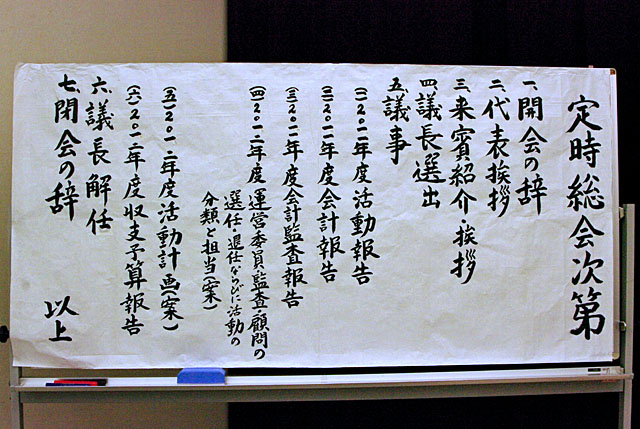 定時総会次第
一、開会の辞
二、代表挨拶
三、来賓紹介・挨拶
四、議長選出
五、議事
(一)２０１１年度活動報告
(二)２０１１年度会計報告
(三)２０１１年度会計監査報告
(四)２０１２年度運営委員・監査・顧問の
選任・退任ならびに活動の
分類と担当(案)
(五)２０１２年度活動計画(案)
(六)２０１２年度収支予算報告
六、議長解任
七、閉会の辞
以上